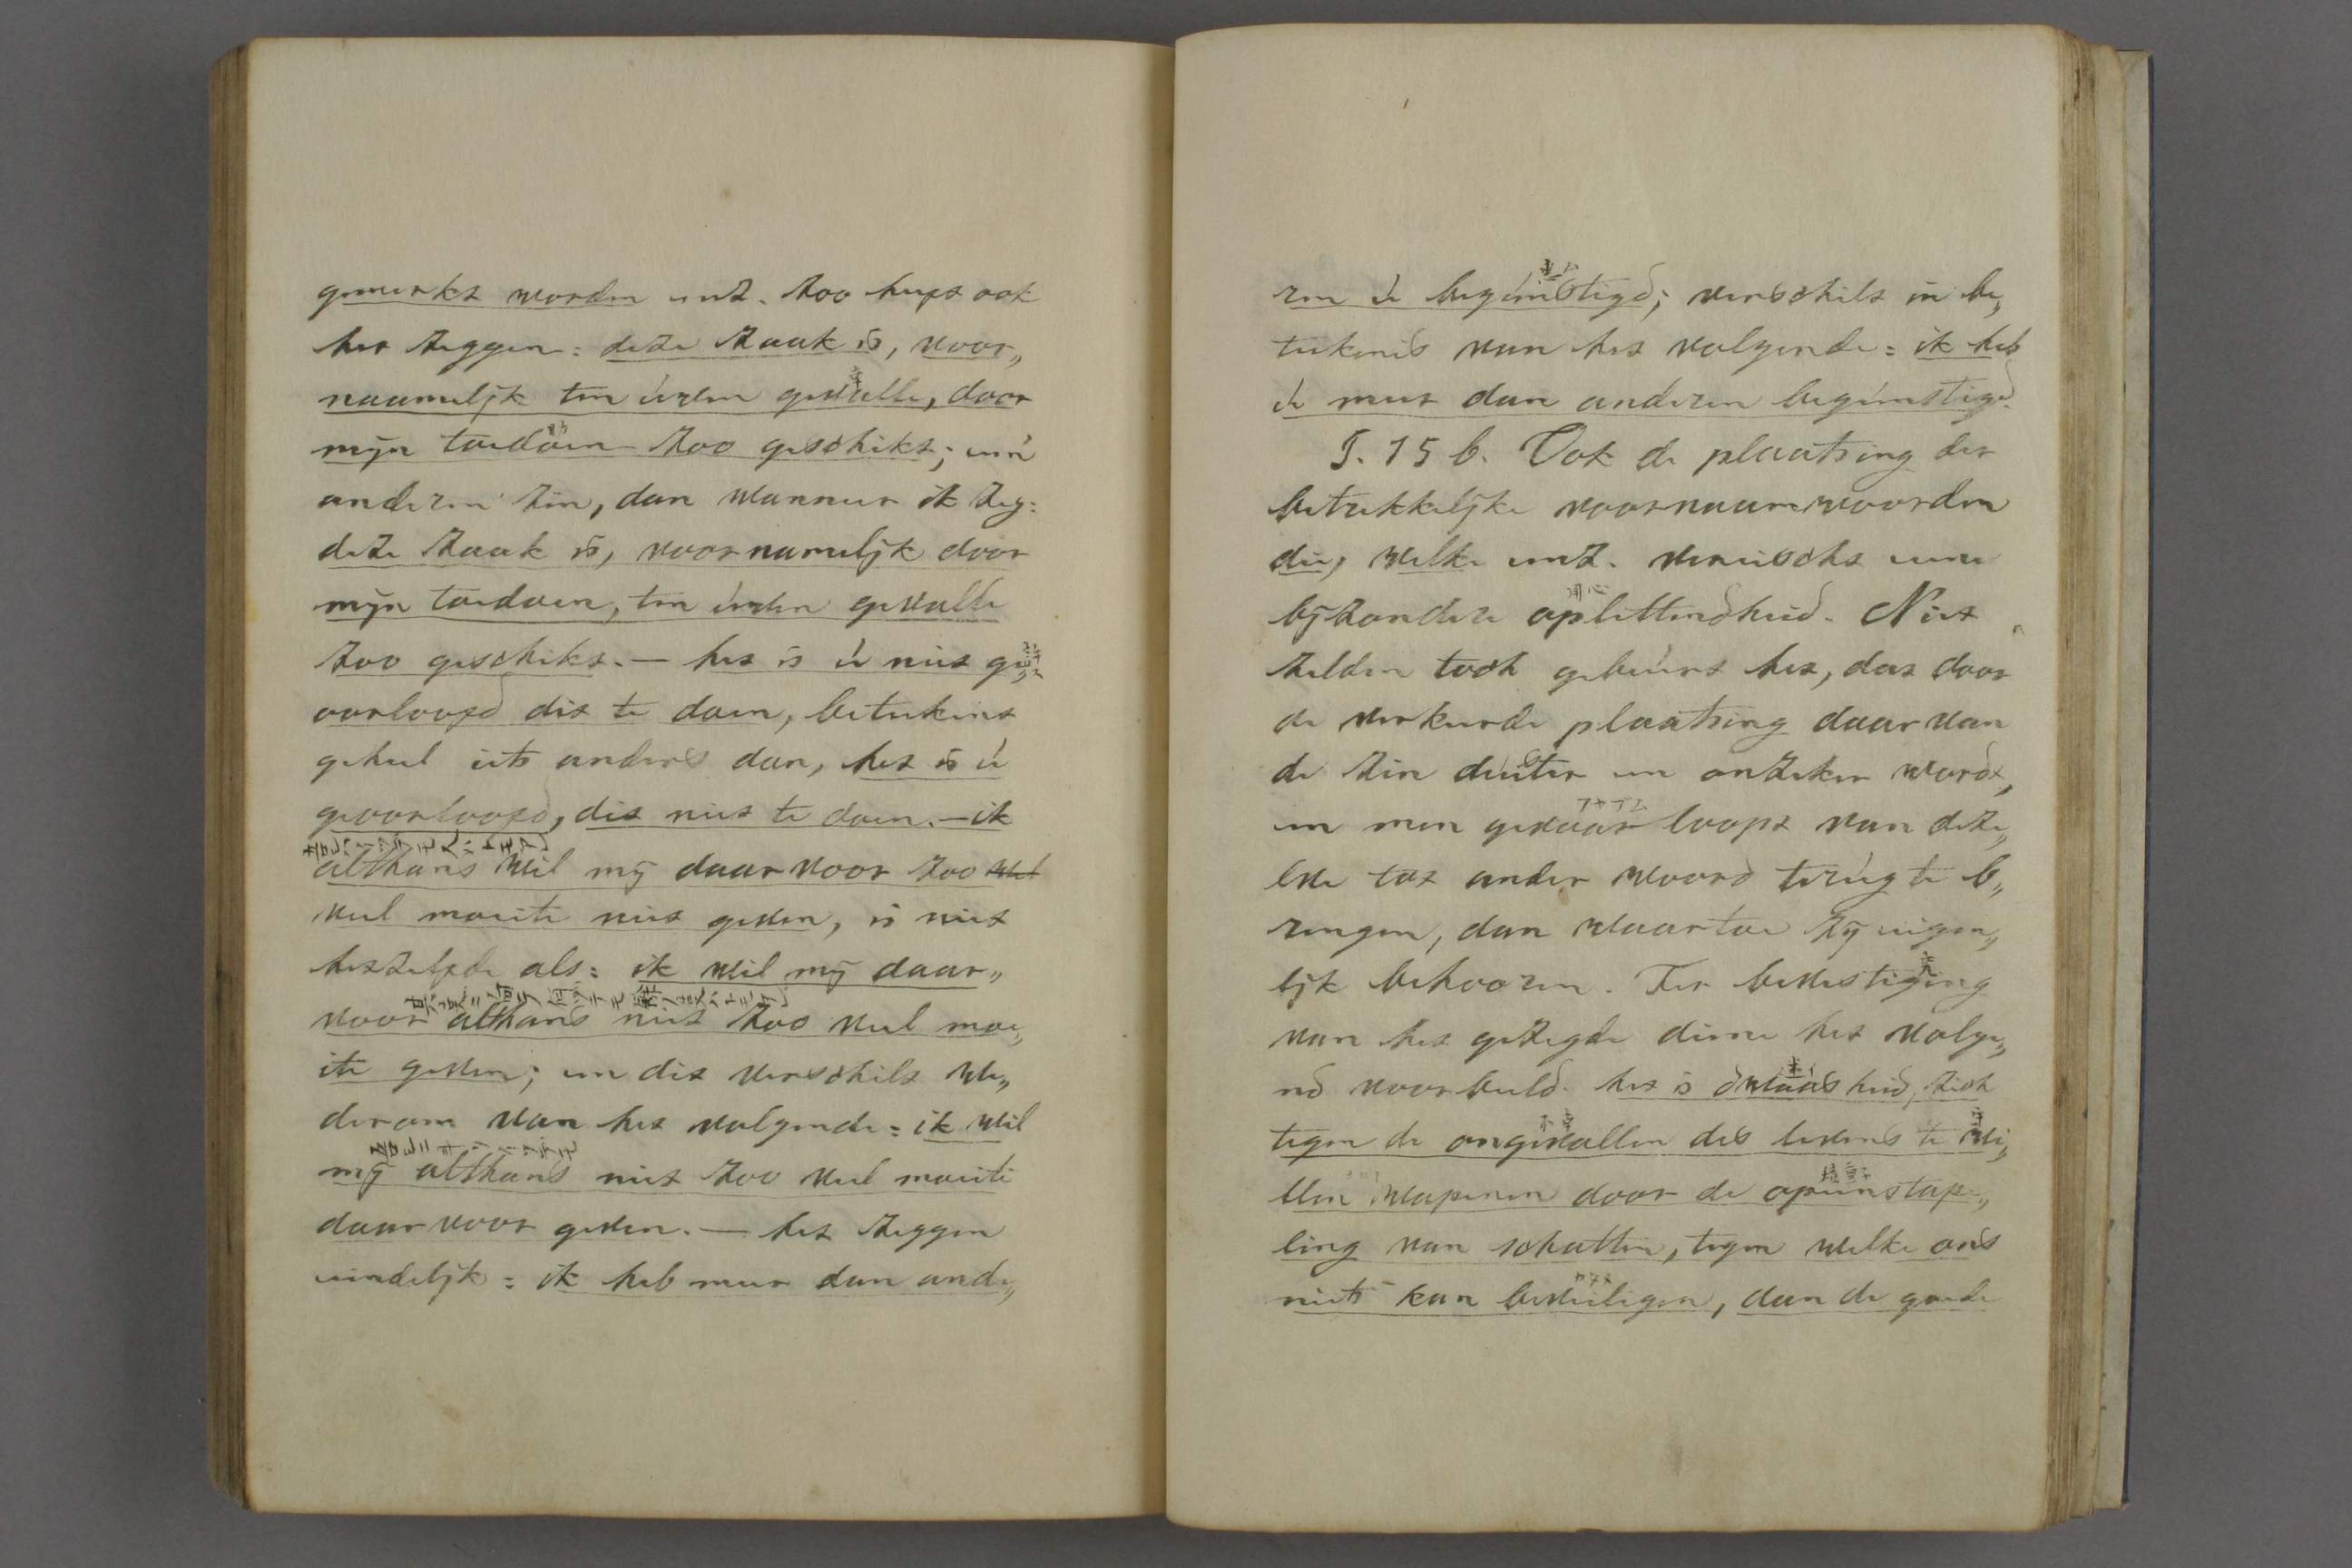 gemerkt worden enz. Zoo heeft ook
het zeggen: deze zaak is, voor„
naamelijk ten uwen gevalle, door
mijn toedoen zoo geschikt; een'
anderen zin, dan wanneer ik zeg:
deze zaak is, voornamelijk door
mijn toedoen, ten uwen gevalle
zoo geschikt. — het is u niet ge„
oorloofd dit te doen, beteekent
geheel iets anders dan, het is u
geoorloofd, dit niet te doen. — ik
althans wil mij daar voor zoo wel
veel moeite niet geven, is niet
hetzelfde als: ik wil mij daar„
voor althans niet zoo veel moe„
ite geven; en dit verschilt we„
derom van het volgende: ik wil
mij althans niet zoo veel moeite
daar voor geven. — het zeggen
eindelijk: ik heb meer dan ande„
ren u begunstigd; verschilt in be„
teekenis van het volgende: ik heb
u meer dan anderen begunstigd.
§. 15 b. Ook de plaatsing der
betrekkelijke voornaamwoorden
die, welke enz. vereischt eene
bijzondere oplettendheid. Niet
zelden toch gebeurt het, dat door
de verkeerde plaatsing daar van
de zin duister en onzeker wordt,
アヤフム
en men gevaar loopt van deze„
lve tot ander woord terug te b„
rengen, dan waartoe zij eigen„
lijk behooren. Ter bevestiging
van het gezegde diene het volge„
nd voorbeeld. het is dwaasheid, zich
不幸
tegen de ongevallen des levens te wi„
llen wapenen door de opeenstape„
ling van schatten, tegen welke ons
niets kan beveiligen, dan de goede